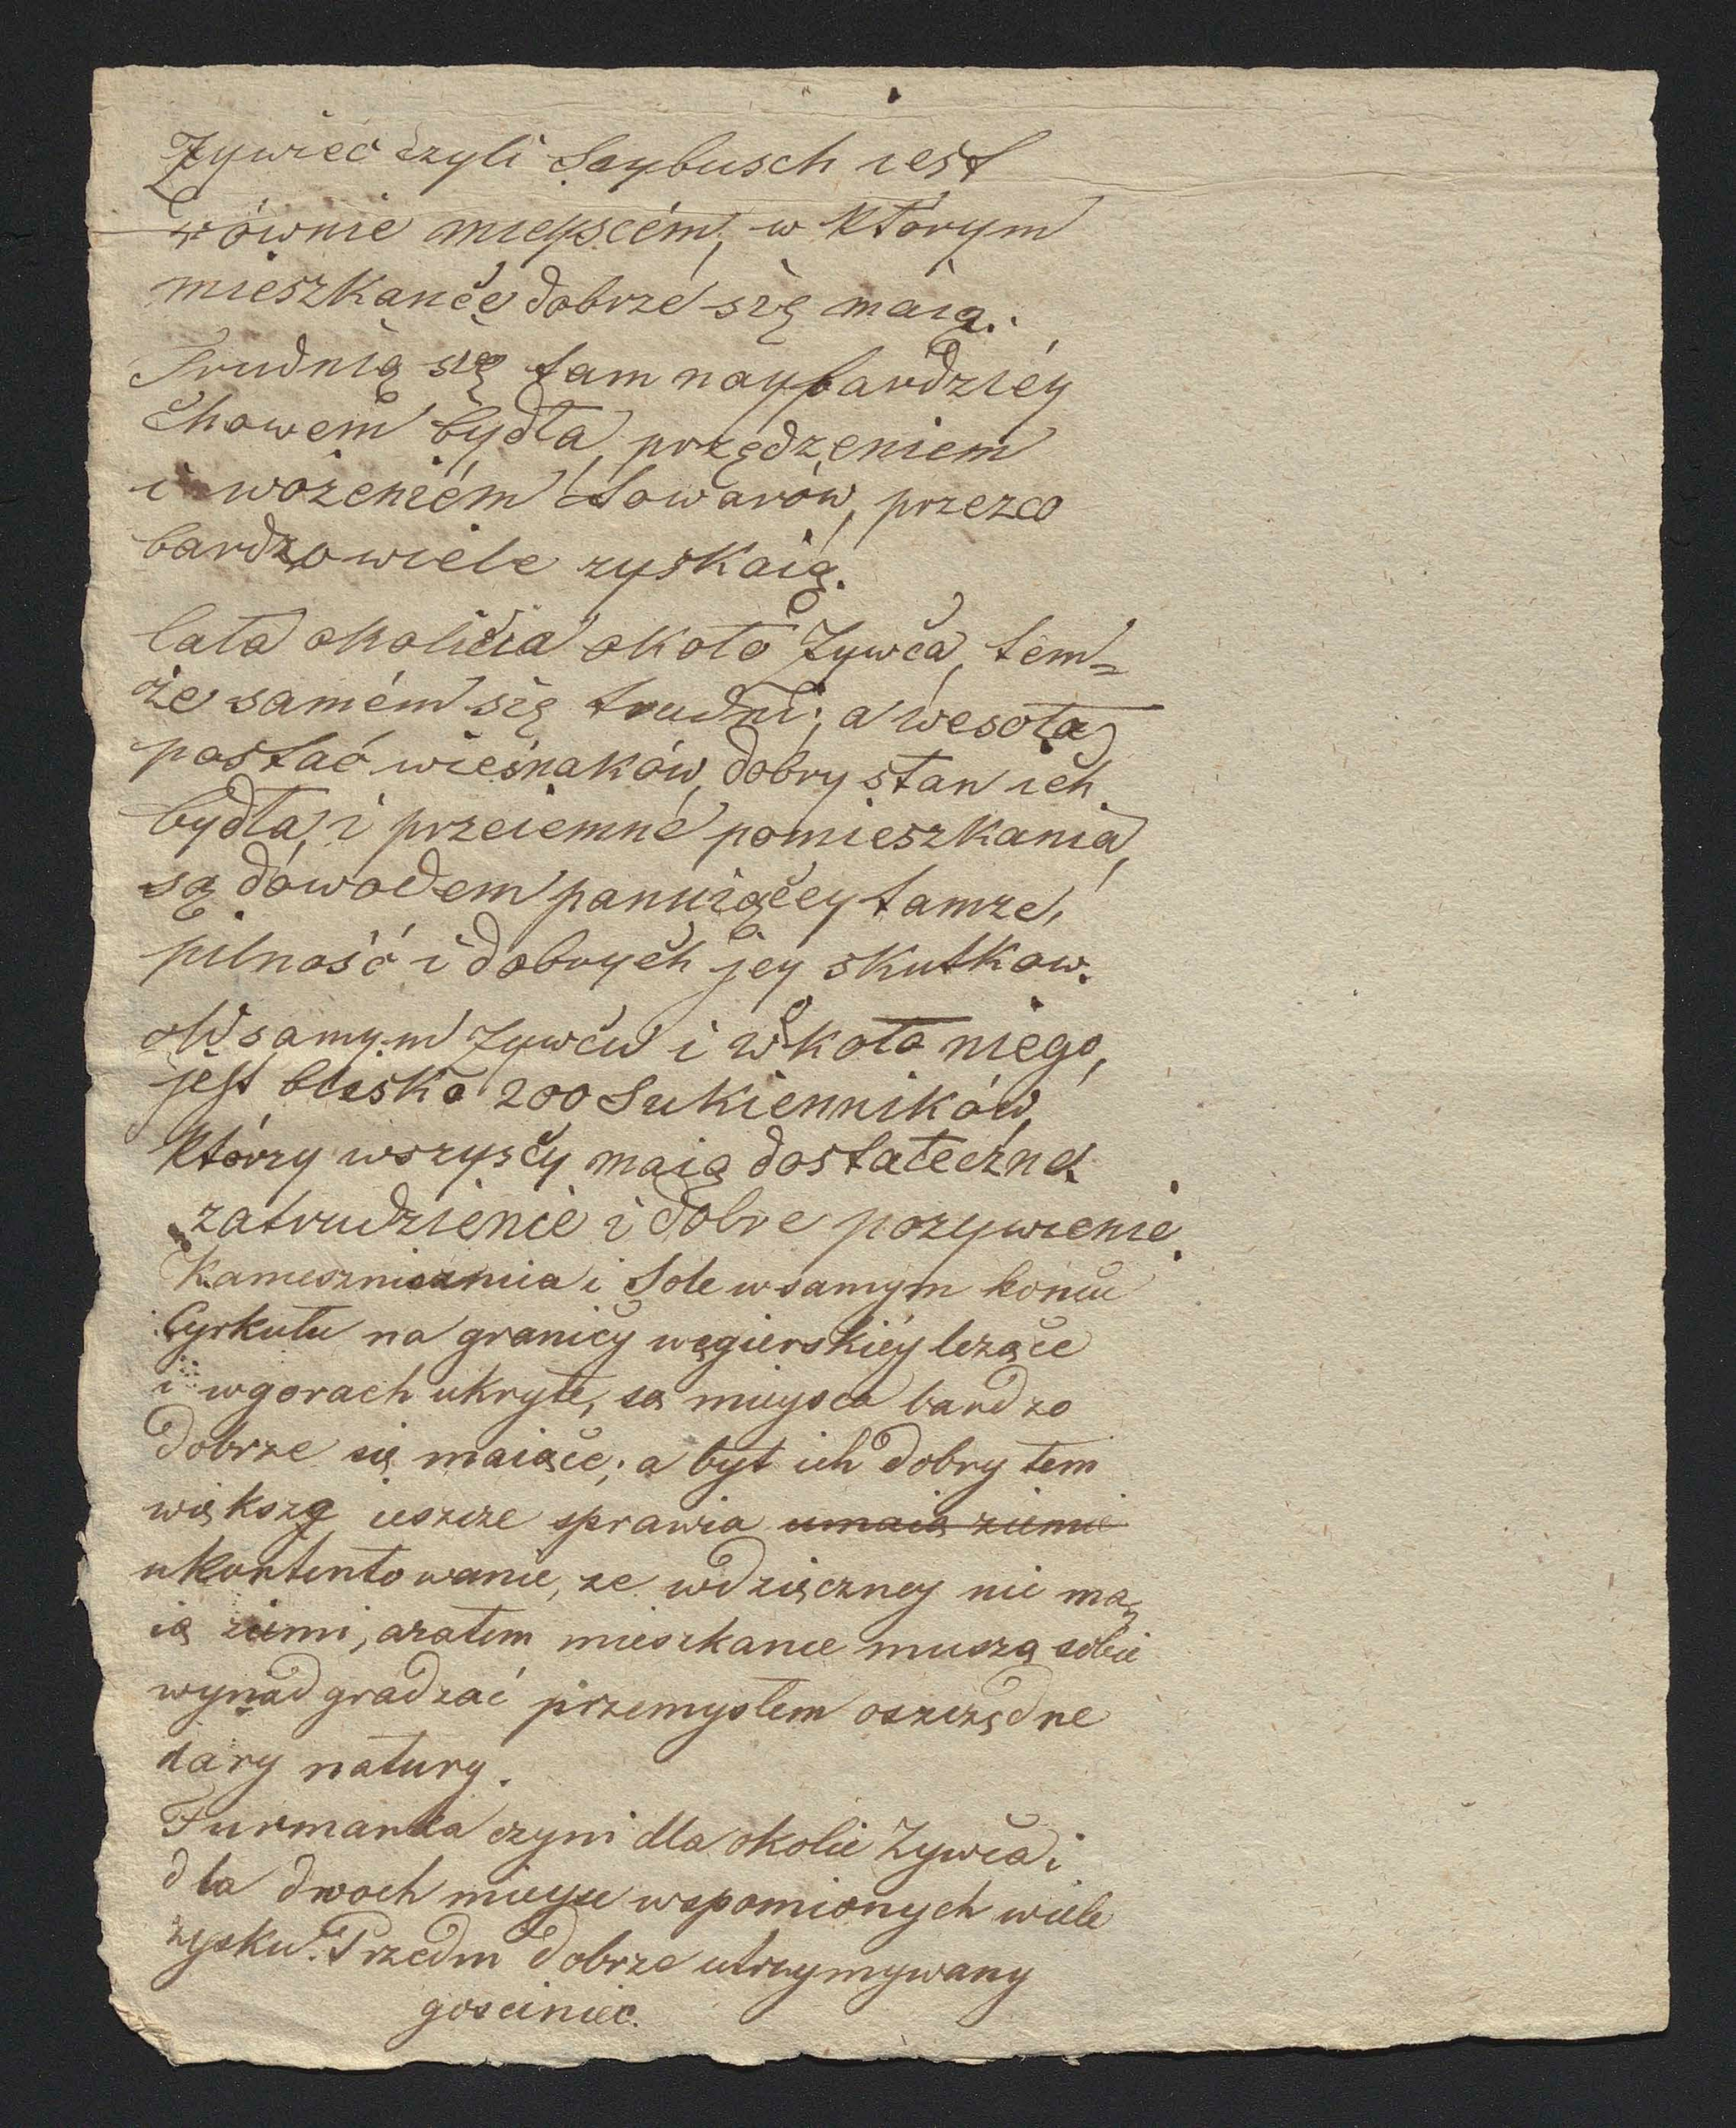 Zywiec czyli Saybusch iest
równie mieyscém, w którym
mieszkance dobrze się maią.
Trudnią się tam naybardziéy
chowem bydła, przędzeniem
i wożeniém towarów, przezco
bardzo wiele zyskaią.
Cała okolicia około Zywca, tem=
że samém się trudni; a wesoła
postać wieśniaków, dobry stan ich
bydła, i przeiemné pomieszkania,
są dowodem panuiącey tamże,
pilność i dobrych jey skutkow.
W samym Zywcu i w koło niego,
jest blisko 200 Sukienników,
którzy wszyscy maią dostateczne
zatrudzienie i dobre pozywienie.
i Sole w samym koncu
Cyrkułu na granicy węgierskiéy leżące
i wgorach ukryte, są mieysca bardzo
dobrze się maiące; a byt ich dobry tem
większą ieszcze sprawia umaią ziemie
ukontentowanie, ze wdzięczney nie ma=
ią ziemi, azatem mieszkance muszą sobie
wynadgradzać przemysłem oszczędne
dary natury.
Furmanka czyni dla okolic Zywca i
dla dwoch mieysc wspomionych wiele
zysku. Przedni dobrze utrzymywany
gosciniec.